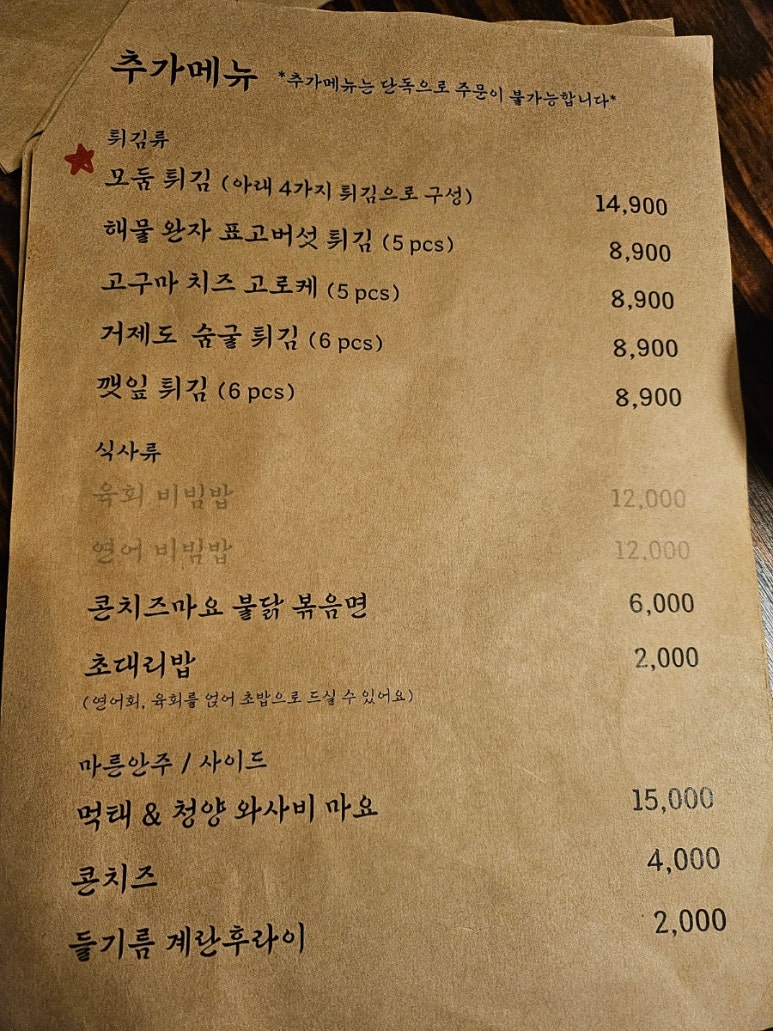 추가메뉴 *추가메뉴는 단독으로 주문이 불가능합니다*
튀김류
모둠 튀김 (아래 4가지 튀김으로 구성) 14,900
해물 완자 표고버섯 튀김 (5 pcs) 8,900
고구마 치즈 고로케 (5 pcs) 8,900
거제도 숨굴 튀김 (6 pcs) 8,900
깻잎 튀김 (6 pcs) 8,900
식사류
육회 비빔밥 12,000
연어 비빔밥 12,000
콘치즈마요 불닭 볶음면 6,000
초대리밥 2,000
(연어회, 육회를 얹어 초밥으로 드실 수 있어요)
마른안주 / 사이드
먹태 & 청양 와사비 마요 15,000
콘치즈 4,000
들기름 계란후라이 2,000